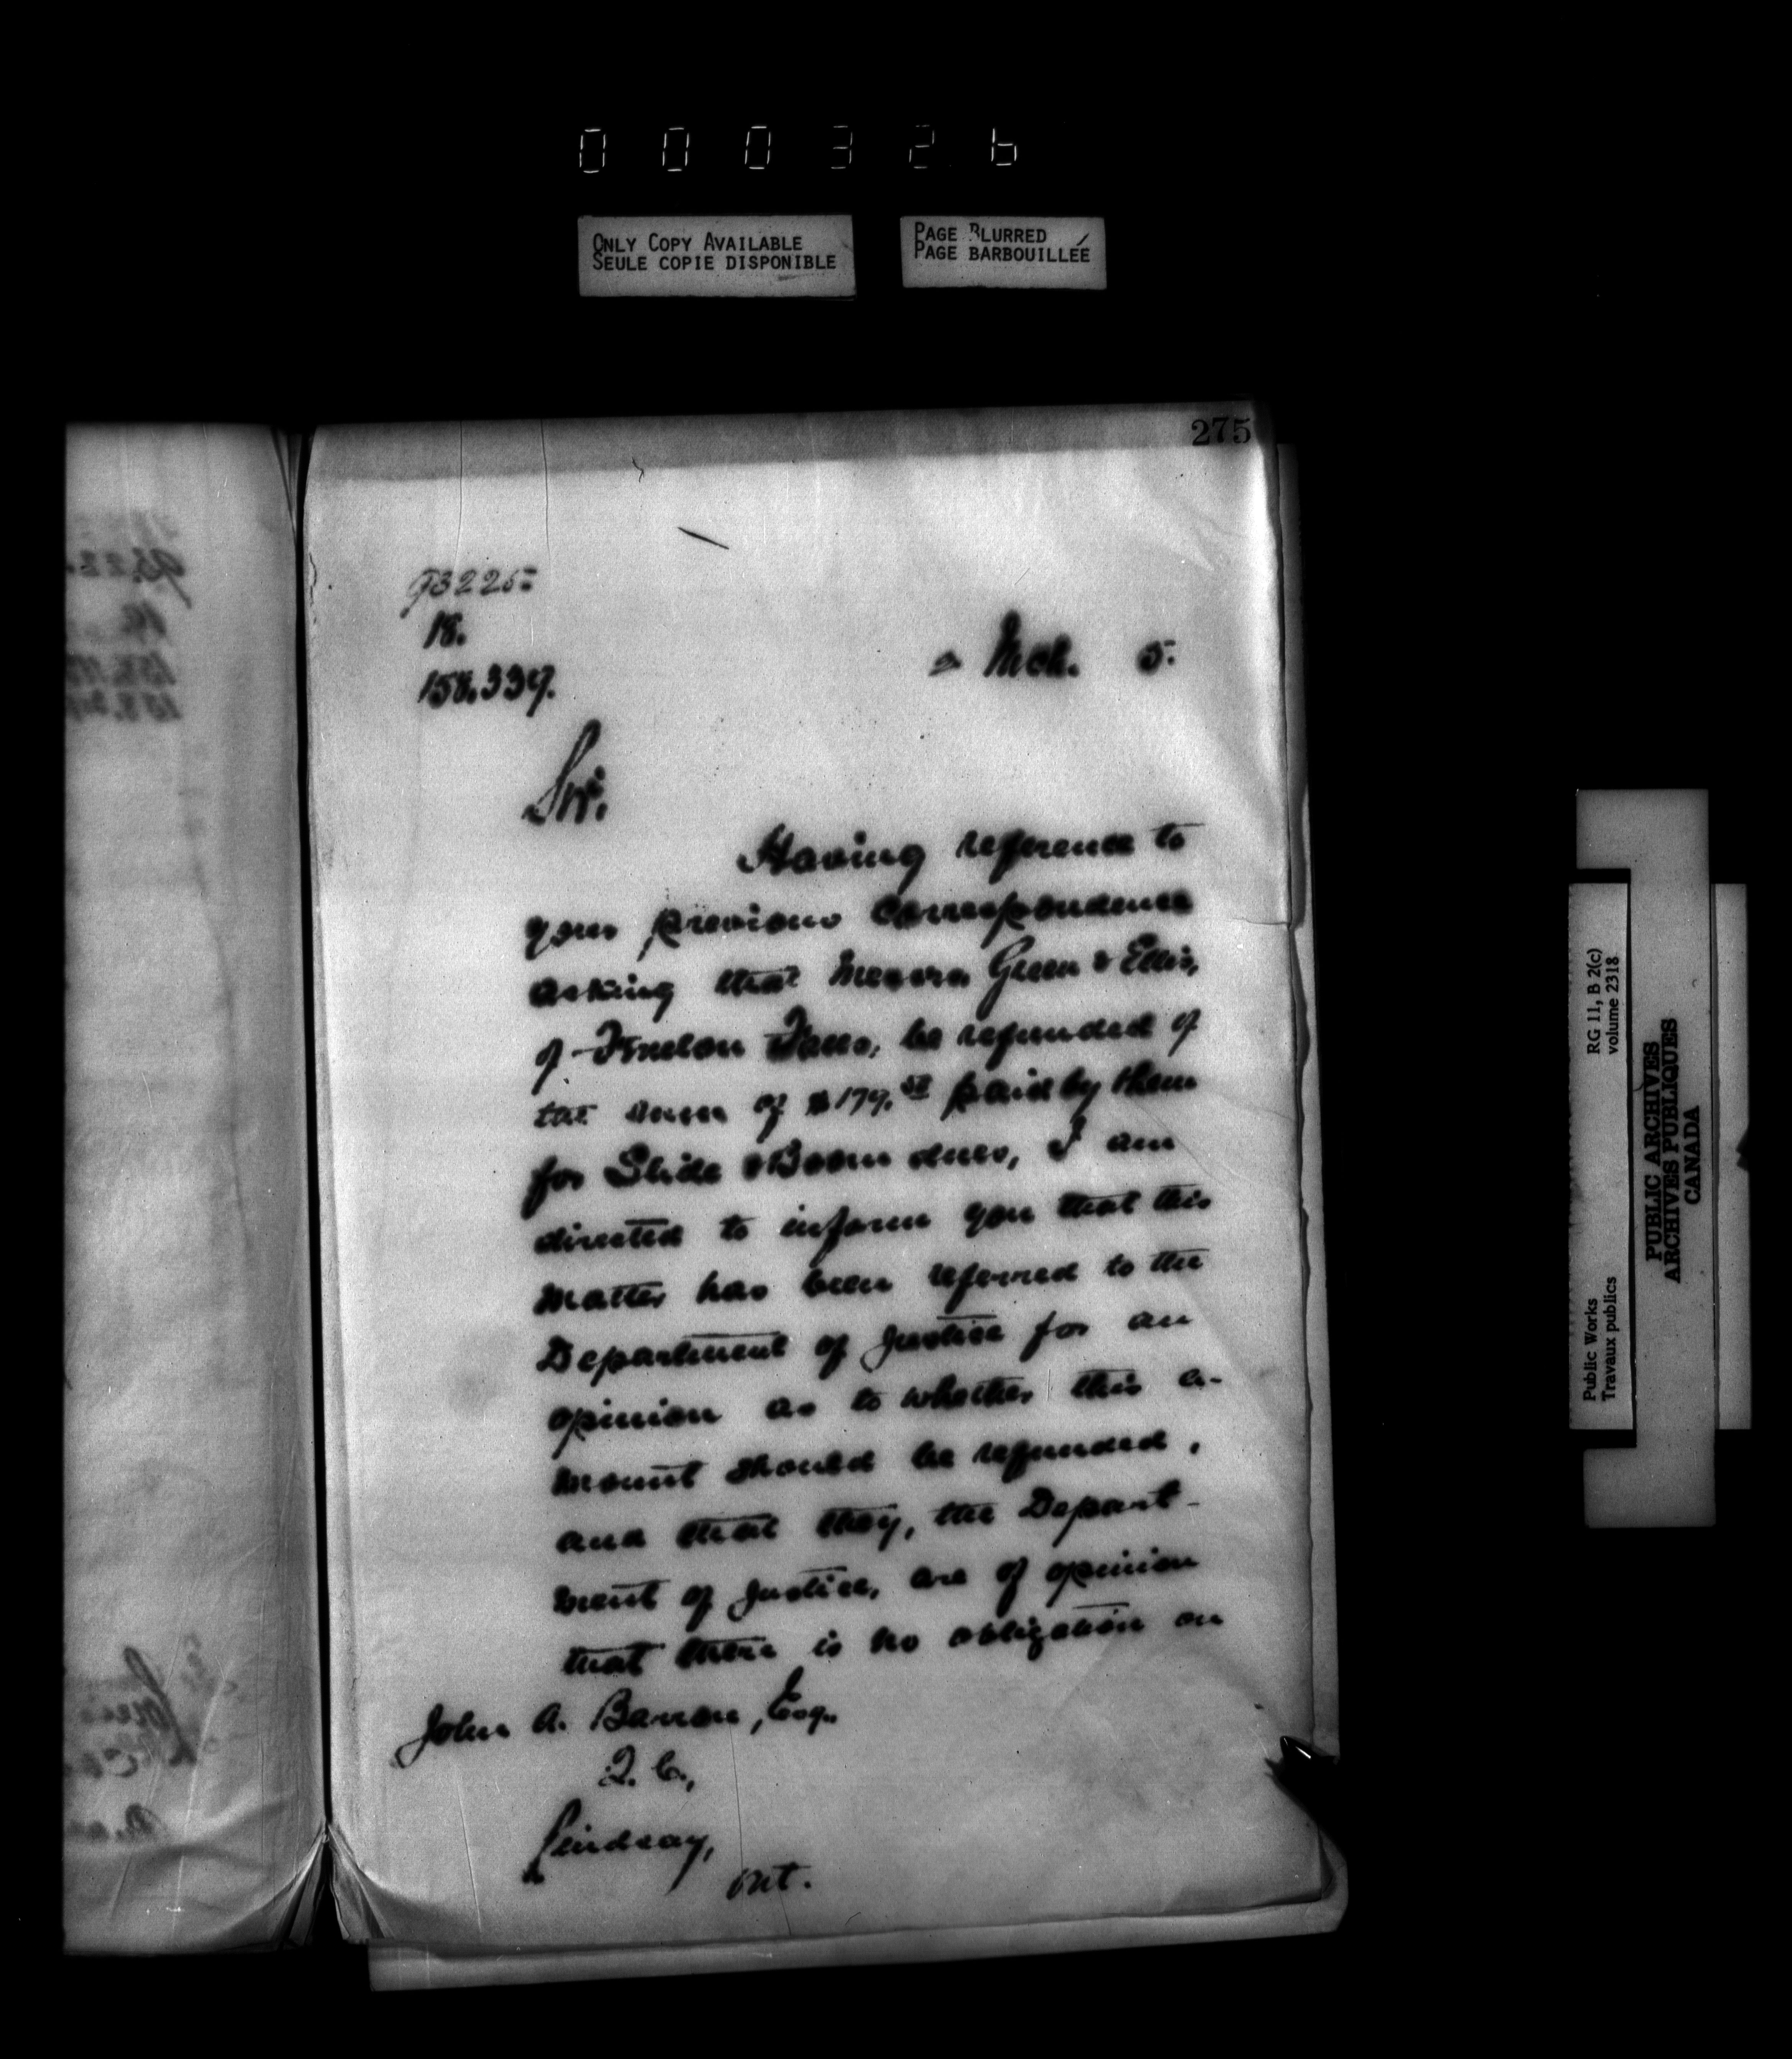 000326
ONLY COPY AVAILABLE
SEULE COPIE DISPONIBLE
PAGE BLURRED
PAGE BARBOUILLÉE
275
93225
18.
158.339.
Mch. 5.
Sir,
Having reference to
your previous correspondence
asking that Messrs Green & Ellis,
of Fenelon Falls, be refunded of
the sum of $179. paid by them
for Slide & Boom dues, I am
directed to inform you that this
matter has been referred to the
Department of Justice for an
opinion as to whether this a-
mount should be refunded,
and that they, the Depart-
ment of Justice, are of opinion
that there is no obligation on
John A. Barron, Esq.
Q.C.,
Lindsay,
Ont.
Public Works
Travaux publics
RG 11, B 2(c)
volume 2318
PUBLIC ARCHIVES
ARCHIVES PUBLIQUES
CANADA